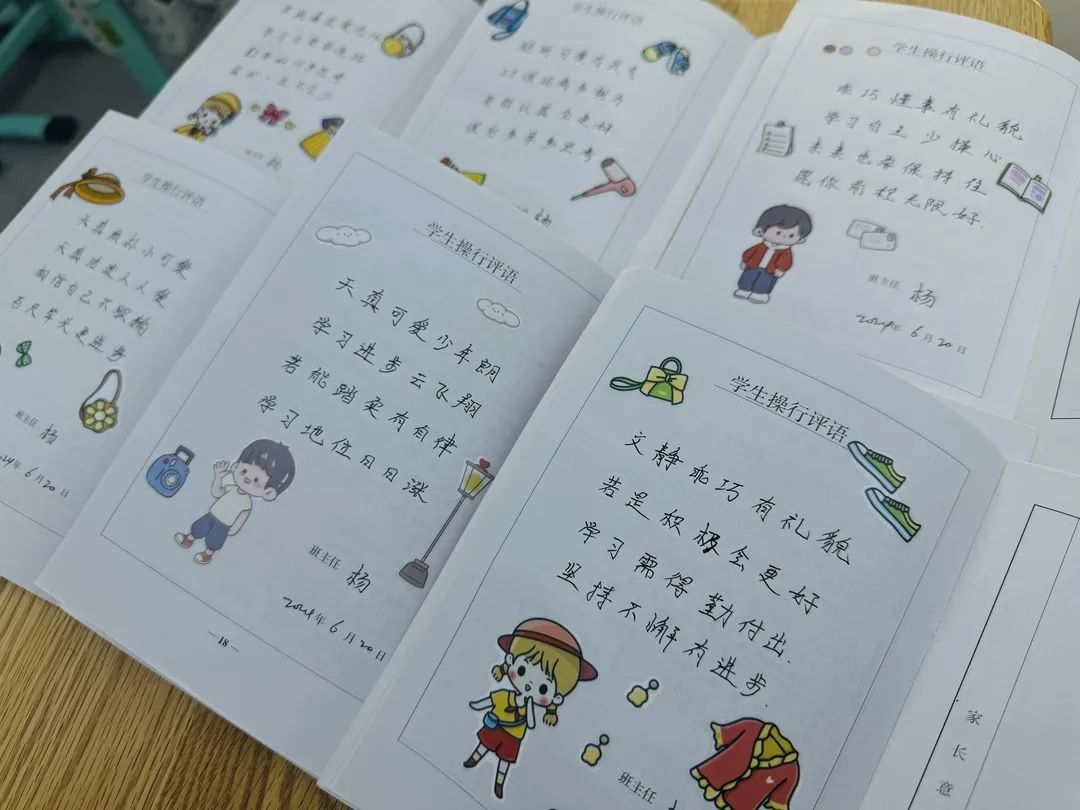 学生操行评语
聪明可爱有灵气
课后多等多思考
学生操行评语
乖巧懂事有礼貌
学习日上少操心
未来也要保持住
愿你前程无限好.
班主任 杨
2024年6月20日
学生操行评语
天真烂漫小可爱
天真活泼人人爱
相信自己不服输
百尺竿头更进步
班主任 杨
2024年6月20日
学生操行评语
天真可爱少年朗
学习进步云飞翔
若能踏实有自律
学习地位日日涨
班主任 杨
2024年6月20日
—18—
学生操行评语
文静乖巧有礼貌
若是积极会更好
学习需得勤付出.
坚持不懈有进步.
班主任
家长意